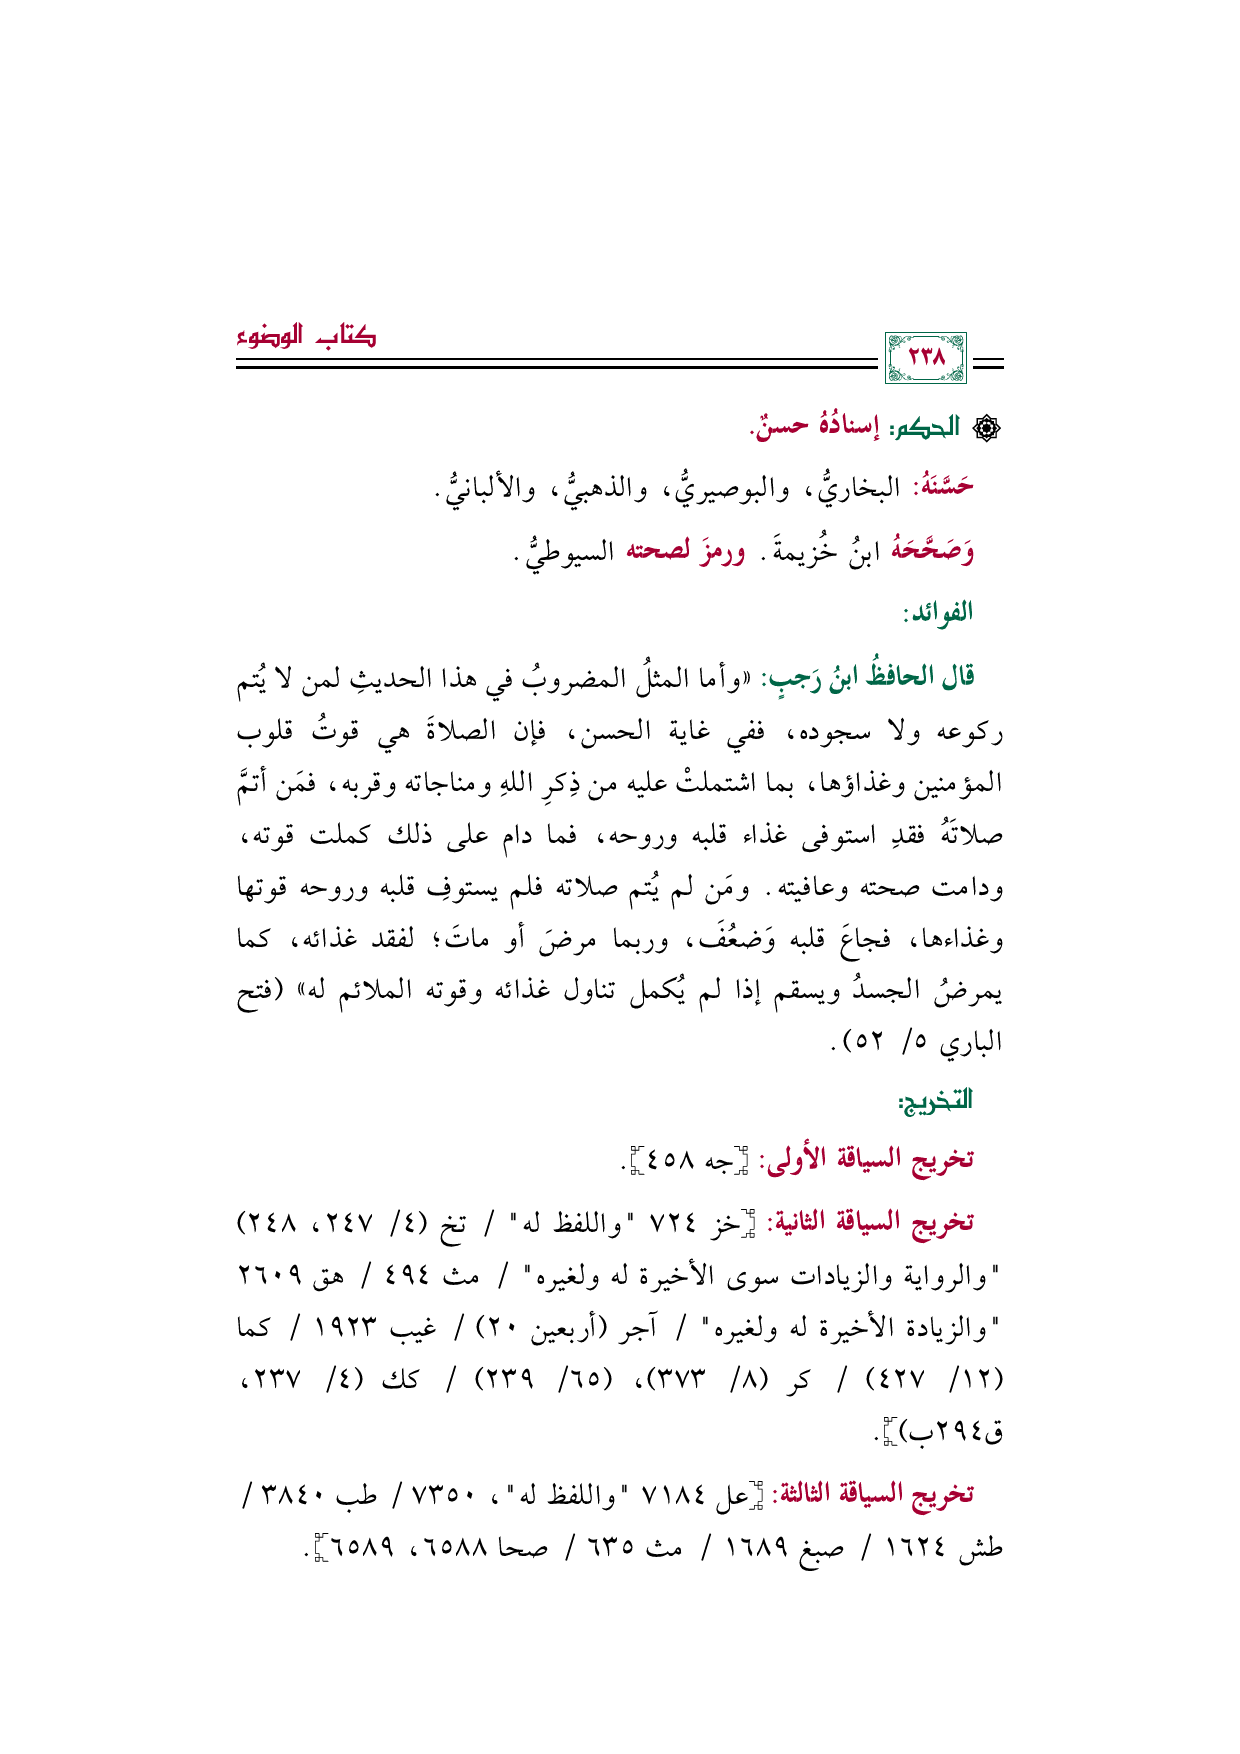 كتاب الوضوء
٢٣٨
الحكم: إسنادُهُ حسنٌ.
حَسَّنَهُ: البخاريُّ، والبوصيريُّ، والذهبيُّ، والألبانيُّ.
وَصَحَّحَهُ ابنُ خُزيمةَ. ورمزَ لصحته السيوطيُّ.
الفوائد:
قال الحافظُ ابنُ رَجبٍ: «وأما المثلُ المضروبُ في هذا الحديثِ لمن لا يُتم
ركوعه ولا سجوده، ففي غاية الحسن، فإن الصلاةَ هي قوتُ قلوب
المؤمنين وغذاؤها، بما اشتملتْ عليه من ذِكرِ اللهِ ومناجاته وقربه، فمَن أتمَّ
صلاتَهُ فقدِ استوفى غذاء قلبه وروحه، فما دام على ذلك كملت قوته،
ودامت صحته وعافيته. ومَن لم يُتم صلاته فلم يستوفِ قلبه وروحه قوتها
وغذاءها، فجاعَ قلبه وَضعُفَ، وربما مرضَ أو ماتَ؛ لفقد غذائه، كما
يمرضُ الجسدُ ويسقم إذا لم يُكمل تناول غذائه وقوته الملائم له» (فتح
الباري ٥/ ٥٢).
التخريج:
تخريج السياقة الأولى: [جه ٤٥٨].
تخريج السياقة الثانية: [خز ٧٢٤ "واللفظ له" / تخ (٤/ ٢٤٧، ٢٤٨)
"والرواية والزيادات سوى الأخيرة له ولغيره" / مث ٤٩٤ / هق ٢٦٠٩
"والزيادة الأخيرة له ولغيره" / آجر (أربعين ٢٠) / غيب ١٩٢٣ / كما
(١٢/ ٤٢٧) / كر (٨/ ٣٧٣)، (٦٥/ ٢٣٩) / كك (٤/ ٢٣٧،
ق٢٩٤ب)].
تخريج السياقة الثالثة: [عل ٧١٨٤ "واللفظ له"، ٧٣٥٠ / طب ٣٨٤٠ /
طش ١٦٢٤ / صبغ ١٦٨٩ / مث ٦٣٥ / صحا ٦٥٨٨، ٦٥٨٩].